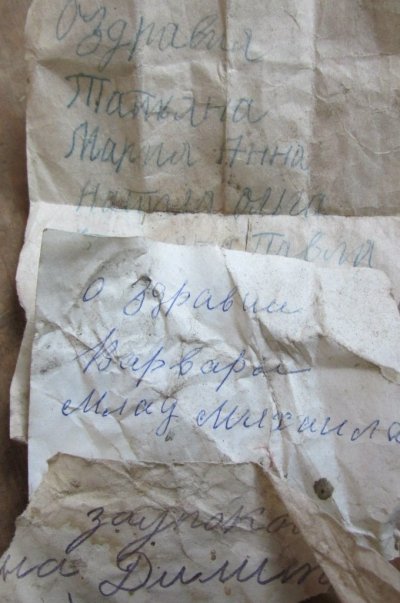 Оздравия
Татьяна
Мария Анна
Наталя Ольга
Павла
о здравии
Варвары
млад Михаила
заупокой
на Димит